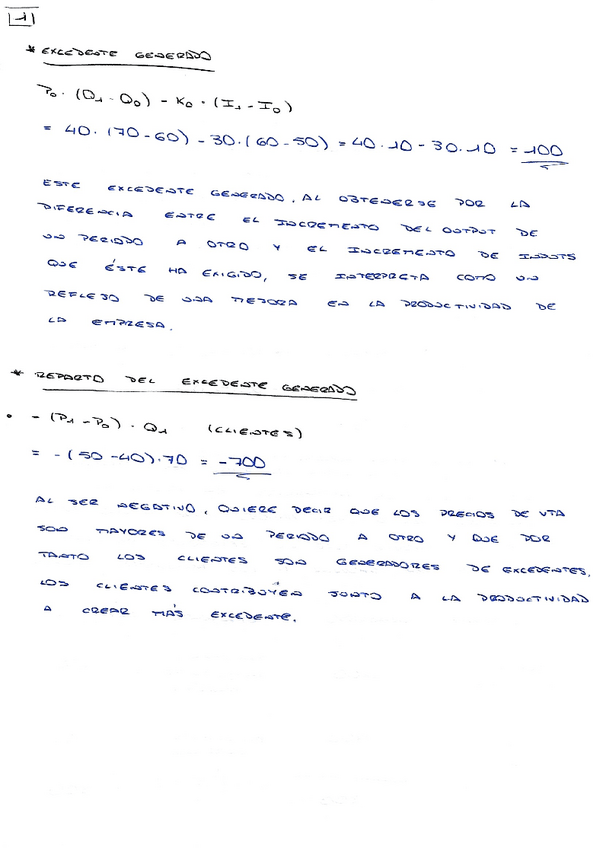 1
* EXCEDENTE GENERADO
P₀ · (Q₁ - Q₀) - K₀ · (I₁ - I₀)
= 40 · (70 - 60) - 30 · (60 - 50) = 40 · 10 - 30 · 10 = 100
ESTE EXCEDENTE GENERADO, AL OBTENERSE POR LA
DIFERENCIA ENTRE EL INCREMENTO DEL OUTPUT DE
UN PERIODO A OTRO Y EL INCREMENTO DE INPUTS
QUE ÉSTE HA EXIGIDO, SE INTERPRETA COMO UN
REFLEJO DE UNA MEJORA EN LA PRODUCTIVIDAD DE
LA EMPRESA.
* REPARTO DEL EXCEDENTE GENERADO
• - (P₁ - P₀) · Q₁ (CLIENTES)
= - (50 - 40) · 70 = -700
AL SER NEGATIVO, QUIERE DECIR QUE LOS PRECIOS DE VTA
SON MAYORES DE UN PERIODO A OTRO Y QUE POR
TANTO LOS CLIENTES SON GENERADORES DE EXCEDENTES.
LOS CLIENTES CONTRIBUYEN JUNTO A LA PRODUCTIVIDAD
A CREAR MÁS EXCEDENTE.